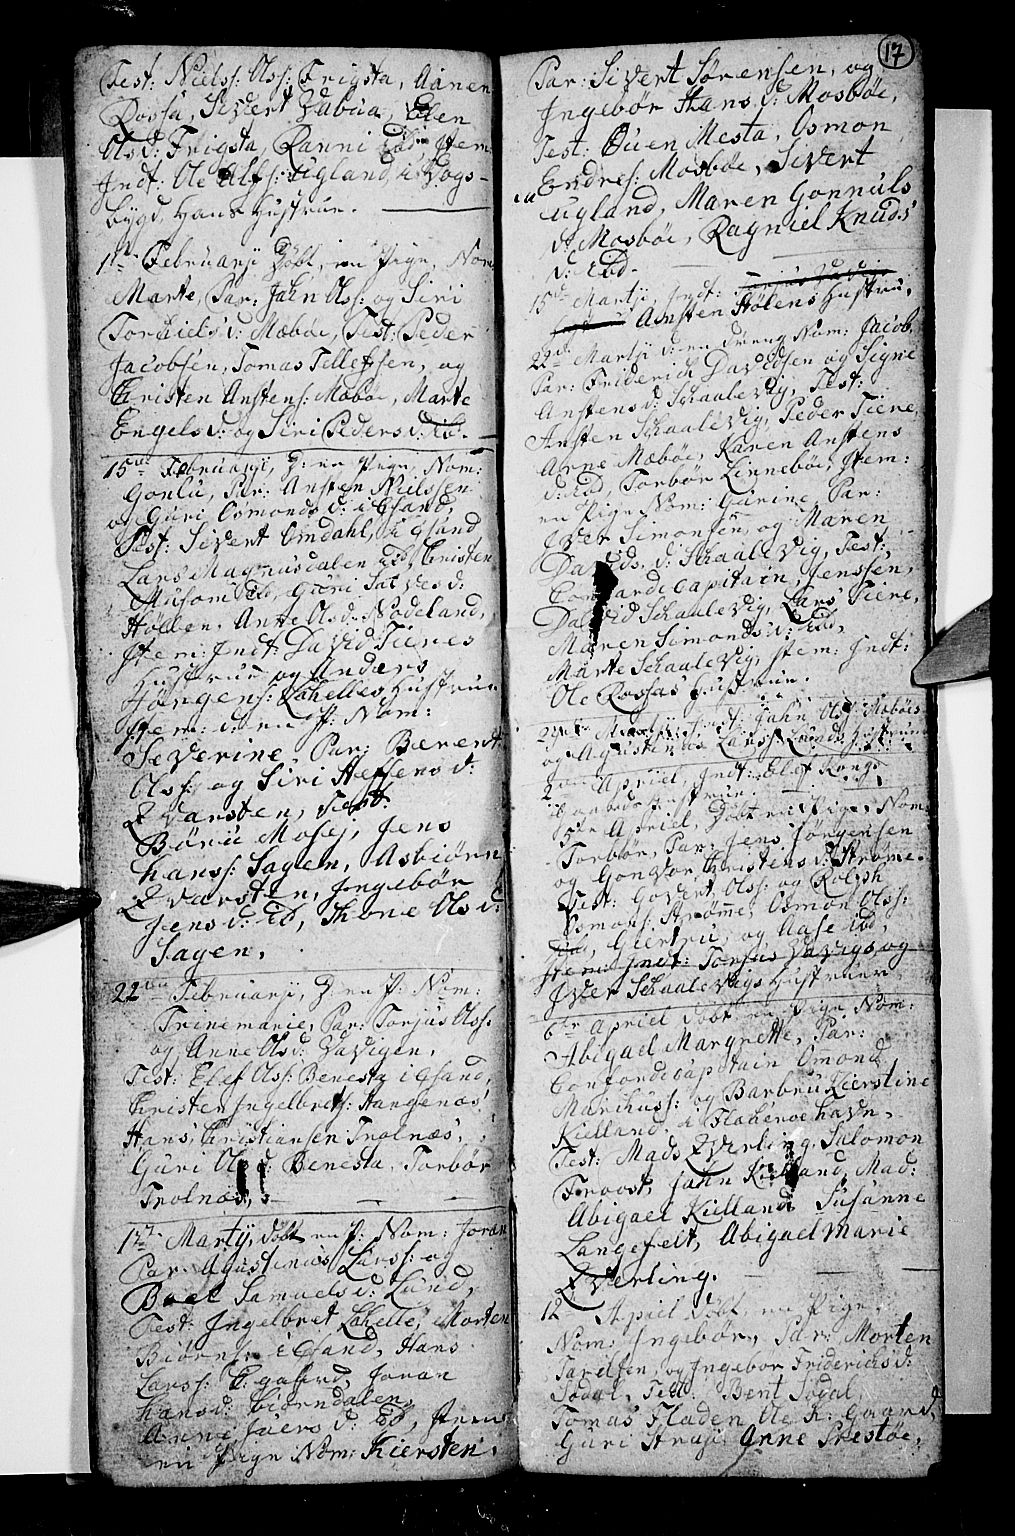 Test: Nielss: Olss: Frigsta, Aanen
Rossa, Sivert Vabua, Elen
Olsd: Frigsta, Ranni Ed: Item:
Indt: Ole Olss: Ugland, Vogs-
bygd, Hans Hustrue.
1ste Februarij Döbt, en Pige, Nom:
Marte, Par: Jahn Olss: og Siri
Torkiels d: Mæböe, Test: Peder
Jacobsen, Tomas Tellefsen, og
Christen Anstens: Mæböe, Marte
Engels d: og Siri Peders d: Ed.
15de Februarij, D: en Pige, Nom:
Gonlu, Par: Ansten Nielssen
og Guri Osmonds d: i Ghand,
Test: Sivert Omdahl, i Ghand
Lars Magnusdalen Ed, Cristen
Musom Ed, Guri Salves d:
Höllen, Anne Olsd: Nodeland,
Item: Indt: David Tieres
Hustrue og Anders
Jörgens: Lahelles Hustrue
Item: d: en P: Nom:
Severine, Par: Berent
Olss: og Siri Steffens d:
Qvarsten, Test:
Börü Mosej, Jens
Hanss: Sagen, Asbiörn
Qvarsten, Ingebör
Jens d: Ed, Thone Ols d:
Sagen.
22de Februarij, D: en P: Nom:
Trinemarie, Par: Torjus Olss:
og Anne Olsd: Vavigen.
Test: Elef Olss: Benesta i Ghand,
Christen Ingelbrets: Hangenæs,
Hans Christiansen Trolnæs,
Guri Ols d: Benesta, Torbör
Trolnæs.
1ste Martij, döbt en P: Nom: Joran
Par: Agustinus Larss: og
Boel Samuels d: Lund,
Test: Ingelbret Lahelle, Morten
Biörns: i Ghand, Hans
Larss: Joran
Hans d: Biorndalen,
Anne Juers d: Ed, Item
en Pige Nom: Kiersten.
17
Par: Sivert Sörensen, og
Ingebör Hans d: Mosböe,
Test: Ouen Mesta, Osmon
Endres: Mosböe, Sivert
Ugland, Maren Gonnuls
d: Mosböe, Ragniel Knuds
d: Ed.
15de Martij, Indt: Torjus Vavigs
Ansten Hölens Hustru.
22de Martij d: en dreng Nom: Jacob,
Par: Friderich Davidsen og Signe
Anstens d: Schaalevig, Test:
Ansten Schaalevig, Peder Tiere,
Arne Mæböe, Karen Anstens
d: Ed, Torbör Linneböe, Item:
en Pige Nom: Gurine, Par:
Iver Simonsen, og Maren
Davids d: Schaalevig, Test:
Comandecapitain, Jenssen,
David Schaalevig, Lars Tiere,
Maren Simonds d: Ed,
Marte Schaalevig, Item: Indt:
Ole Rossas Hustrue.
Martij Indt: Jahn Olss: Mæböes
og Agustinus Larss: Lunds Hustruer
2den Apriel, Indt: Elef Kongs
Hustrue.
5te Apriel, Döbt en Pige, Nom:
Torbör, Par: Jens Jörgensen
og Gonvor Christens d: Ströme.
Test: Govert Olss: og Rolph
Osmons: Strömme, Osmon Olss:
Ed, Giertru, og Aase Ed,
Item: Indt: Torjus Vavigs, og
Iver Schaalevigs Hustruer
6te Apriel döbt en Pige, Nom:
Abigael Margrette, Par:
Comandecapitain Omond
Marchuss: og Barbru Kierstine
Kielland, i Flaheroe havn.
Test: Mads Qverling, Salomon
Froost, Jahn Kielland, Mad:
Abigael Kielland, Susanne
Langefelt, Abigael Marie
Qverling.
12 Apriel döbt, en Pige
Nom: Ingebör, Par: Morten
Tarelsen, og Ingebor Friderichs d:
Sodal, Test: Bent Sodal,
Tomas Fladen, Gaard,
Guri Strai, Anne Prestöe,